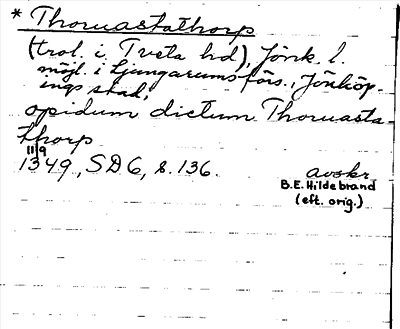 * Thoruastathorp
(trol. i Tveta hd), Jönk. l.
möjl. i Ljungarums förs., Jönköp-
ings stad,
opidum dictum Thoruasta-
thorp
11/9
1349, SD 6, s. 136.
avskr.
B.E. Hildebrand
(eft. orig.)